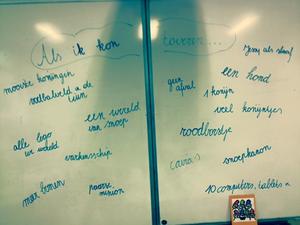 Als ik kon toveren...
mooiste koningen
voetbalveld in de
tuin
een wereld
van snoep
alle lego
varkensschip
meer bomen
paarse
minion
als
een hond
geen
afval
1 konijn
veel konijntjes
roodborstje
cavia's
snoepkanon
10 computers, tablets